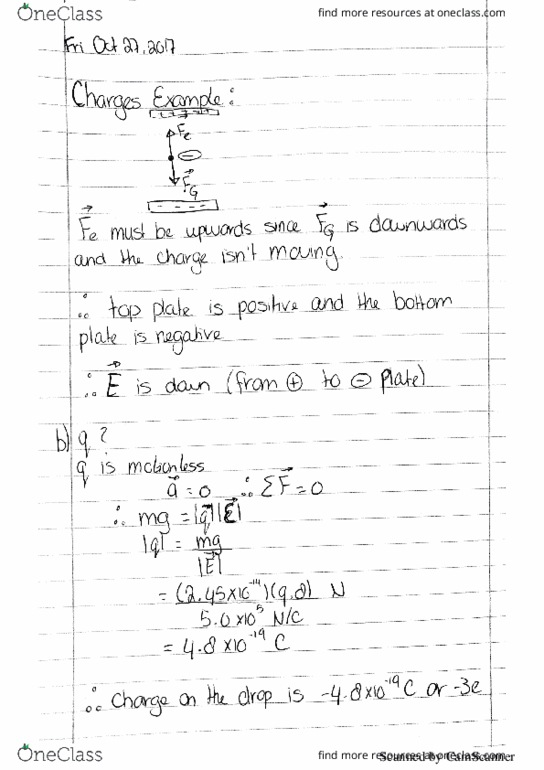 OneClass
find more resources at oneclass.com
Fri Oct 27, 2017
Charges Example:
+ + + +
F⃗e
−
F⃗G
- - - -
F⃗e must be upwards since F⃗G is downwards
and the charge isn't moving.
∴ top plate is positive and the bottom
plate is negative
∴ E⃗ is down (from ⊕ to ⊖ plate)
b) q?
q is motionless
a⃗ = 0 ∴ ΣF⃗ = 0
∴ mg = |q||E⃗|
|q| = mg
|E⃗|
= (2.45×10⁻¹⁴)(9.8) N
5.0×10⁵ N/C
= 4.8×10⁻¹⁹ C
∴ Charge on the drop is -4.8×10⁻¹⁹ C or -3e
OneClass
find more resources at oneclass.com
Scanned by CamScanner